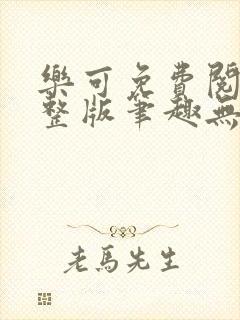 樂可免費閱
整版筆趣無
老馬先生